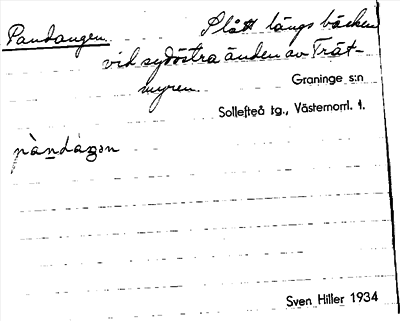 Pandangen. Slått längs bäcken
vid sydöstra änden av Trät-
myren.
Graninge s:n
Sollefteå tg., Västernorrl. l.
pàndáŋən
Sven Hiller 1934